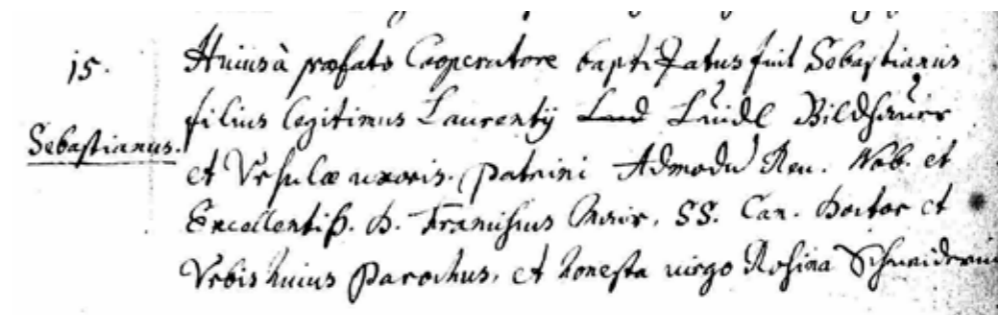 15. Huius à præfato Cooperatore baptizatus fuit Sebastianus
Sebastianus. filius legitimus Laurentij Luidl Bildhauer
et Vrsulæ uxoris. patrini Admodu Reu. Nob. et
Excellentiß. D. Franciscus Mair. SS. Can. Doctor et
Vrbis huius Parochus, et honesta uirgo Rosina Schneiderin